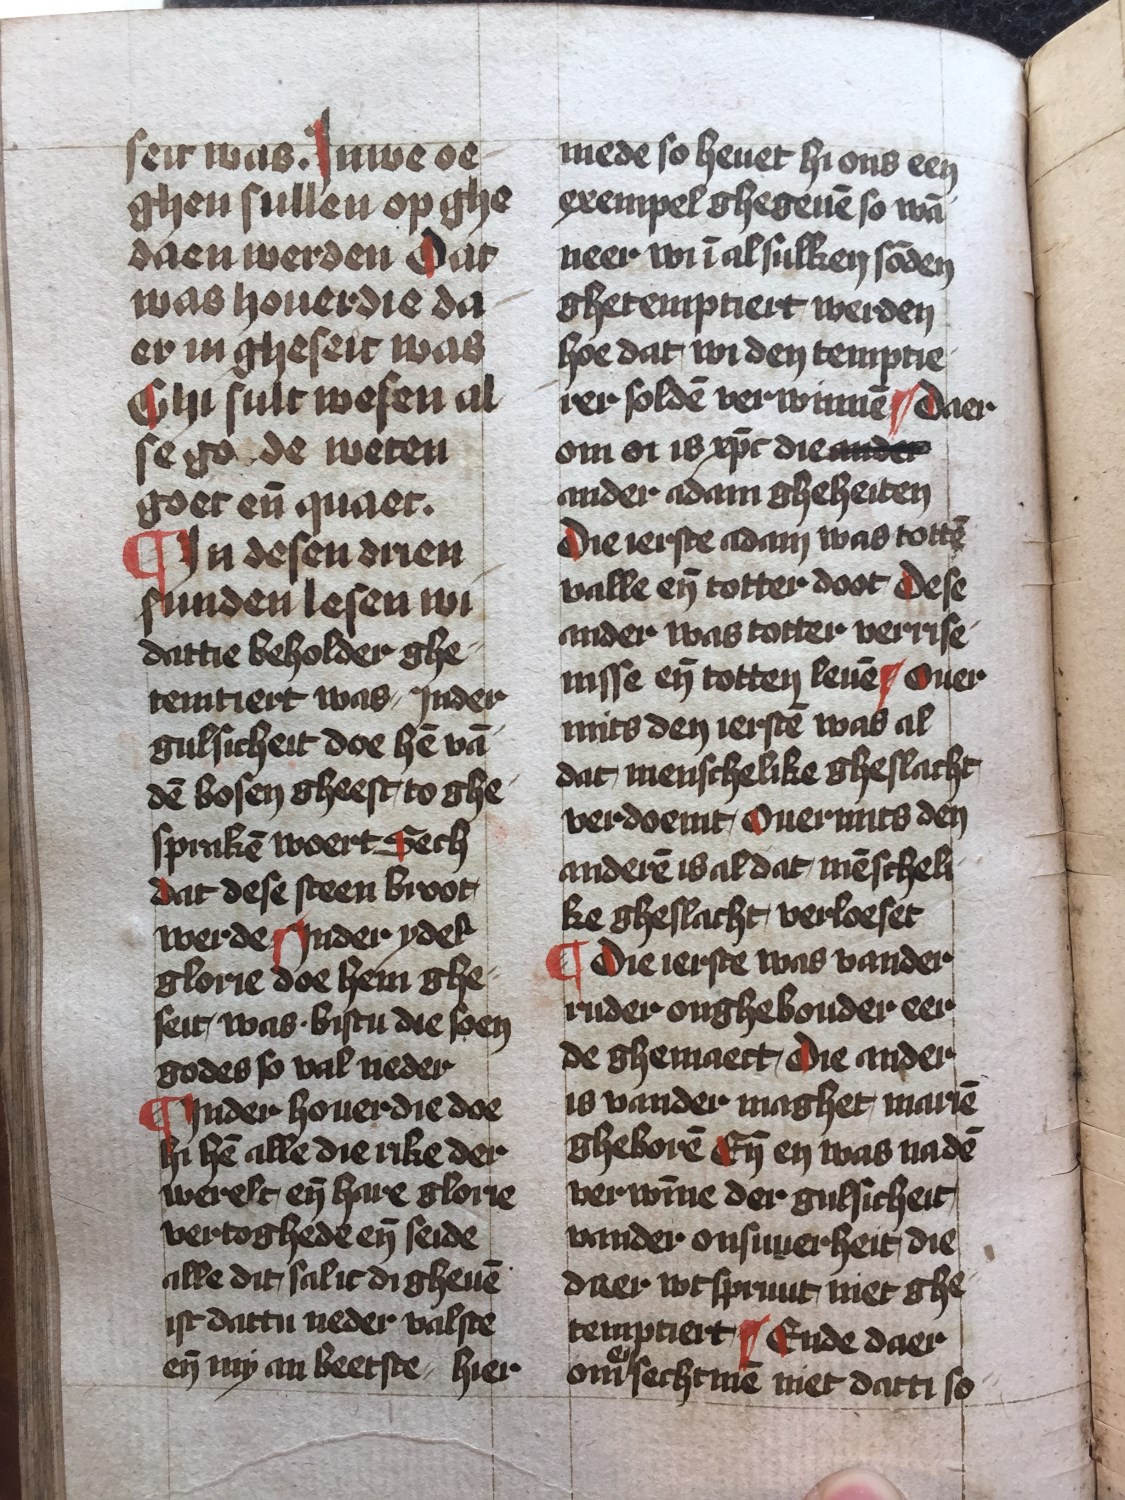 seit was. Inwe oe
ghen sullen op ghe
daen werden Dat
was houerdie da
er in gheseit was
Ghi sult wesen al
se go de weten
goet en̄ quaet.
¶ In desen drien
sunden lesen wi
dattie beholder ghe
temtiert was / Inder
gulsicheit doe hē vā
dē bosen gheest to ghe
sprakē woert Sech
dat dese steen broot
werde ¶ Inder ydelr
glorie doe hem ghe
seit was · bistu die soen
godes so val neder
¶ Inder houerdie doe
hi hē alle die rike der
werelt en̄ hare glorie
vertoghede en̄ seide
alle dit sal ic di gheuē
ist dattu neder valste
en̄ my an beetste / hier
mede so heuet hi ons een
exempel ghegeuē so wā
neer wi ī al sulken sōden
ghetemptiert werden
hoe dat wi den temptie
rer soldē verwinnē ¶ Daer
om oi is xp̄c die ander
ander adam gheheiten
Die ierste adam was tottē
valle en̄ totter doot Dese
ander was totter verrise
nisse en̄ totten leuē ¶ Ouer
mits den ierstē was al
dat menschelike gheslacht
verdoemt / Ouermits den
anderē is al dat mēscheli
ke gheslacht verloeset
¶ Die ierste was vander
ruder onghebouder eer
de ghemaect / Die ander
is vander maghet mariē
gheborē En̄ en was nadē
verwīne der gulsicheit
vander onsuuerheit die
daer wt spruut niet ghe
temptiert ¶ Ende daer
om en sechtmē niet datti so